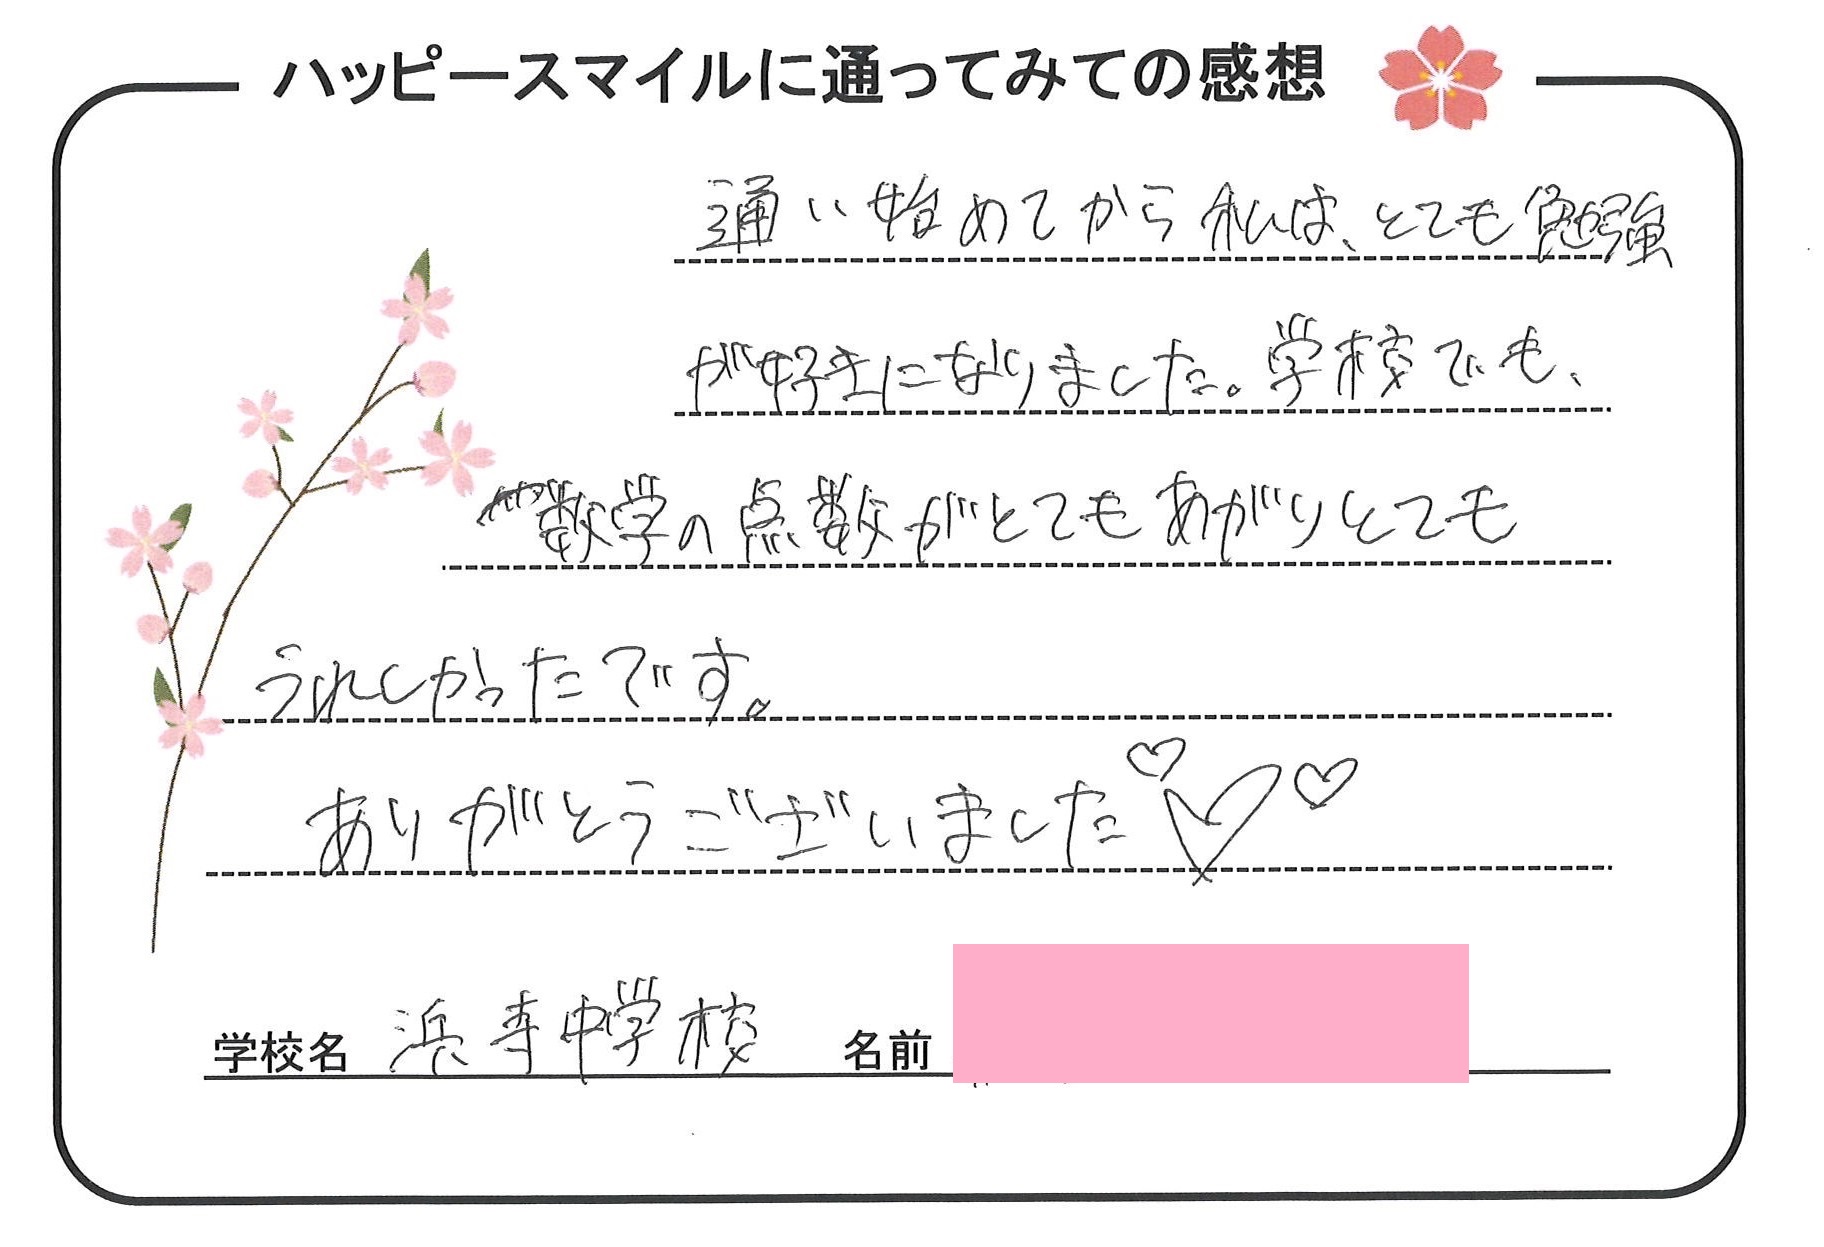 ハッピースマイルに通ってみての感想
通い始めてから私は、とても勉強
が好きになりました。学校でも、
数学の点数がとてもあがりとても
うれしかったです。
ありがとうございました♡♡♡
学校名 浜寺中学校 名前